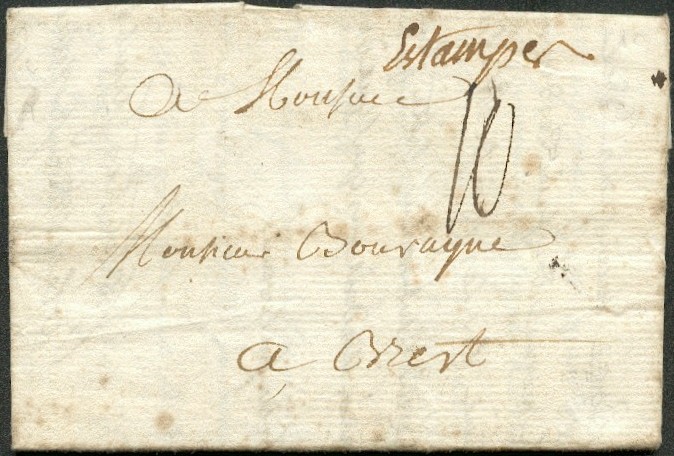 Estampes
A Monsieur
10
Monsieur Bourayne
a Brest